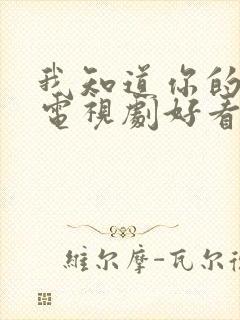 我知道你的
電視劇好看
維尔摩-瓦尔德